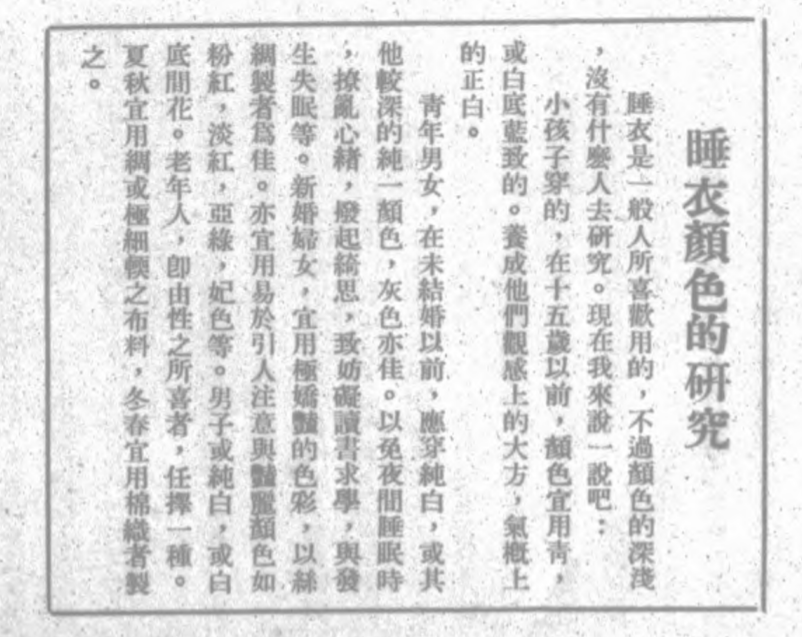 睡衣顏色的研究
睡衣是一般人所喜歡用的，不過顏色的深淺
，沒有什麼人去研究。現在我來說一說吧：
小孩子穿的，在十五歲以前，顏色宜用青，
或白底藍致的。養成他們觀感上的大方，氣概上
的正白。
青年男女，在未結婚以前，應穿純白，或其
他較深的純一顏色，灰色亦佳。以免夜間睡眠時
，撩亂心緒，撥起綺思，致妨礙讀書求學，與發
生失眠等。新婚婦女，宜用極嬌豔的色彩，以絲
綢製者爲佳。亦宜用易於引人注意與豔麗顏色如
粉紅，淡紅，亞綠，妃色等。男子或純白，或白
底間花。老年人，卽由性之所喜者，任擇一種。
夏秋宜用綢或極細輭之布料，冬春宜用棉織者製
之。